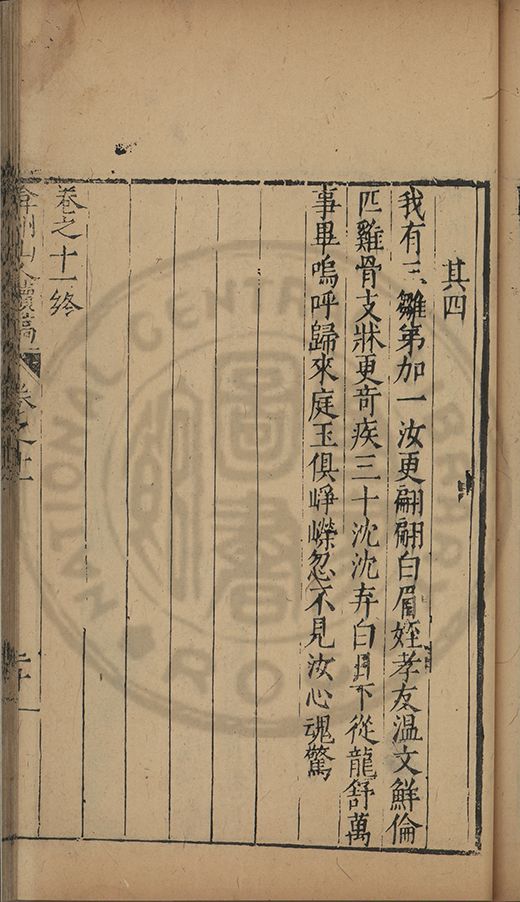 其四
我有三雛弟加一汝更翩翩白眉姪孝友溫文鮮倫
匹雞骨支牀更奇疾三十沈沈弃白日下從龍舒萬
事畢嗚呼歸來庭玉俱崢嶸忽不見汝心魂驚
卷之十一終
弇州山人續稿
卷之十一